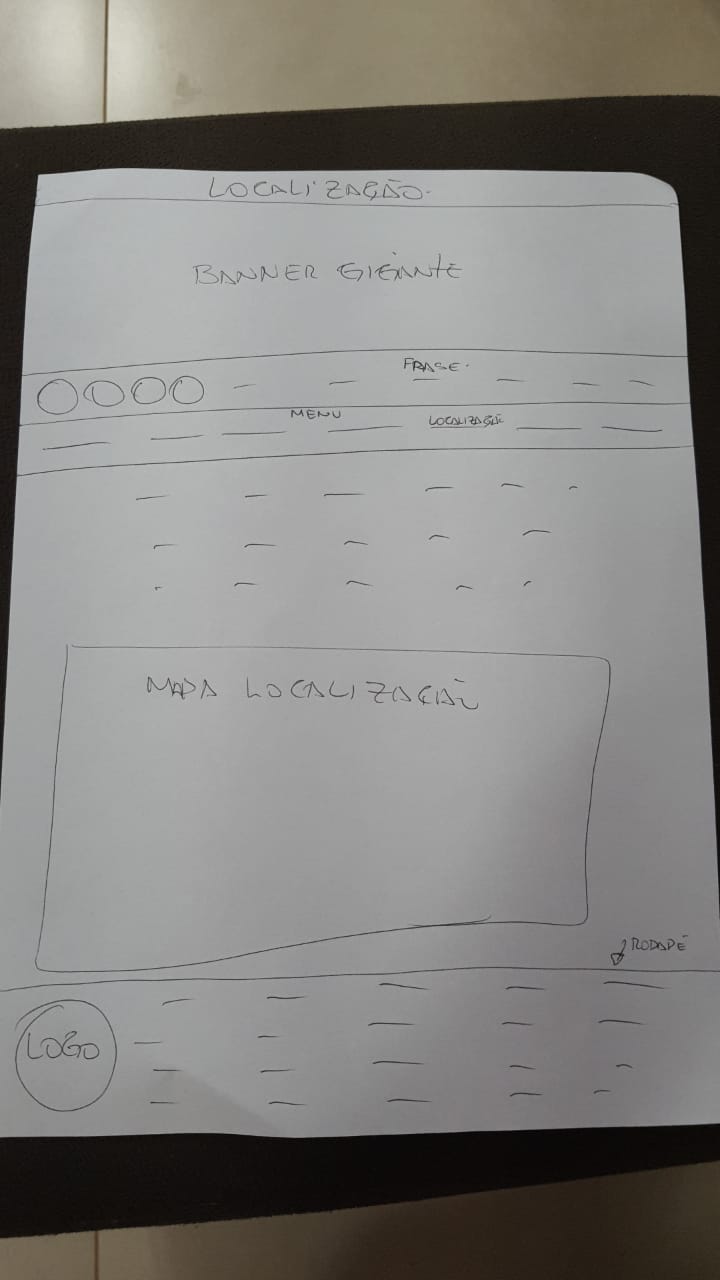 LOCALIZAÇÃO.
BANNER GIGANTE
FRASE.
MENU
LOCALIZAÇÃO
MAPA LOCALIZAÇÃO
RODAPÉ
LOGO